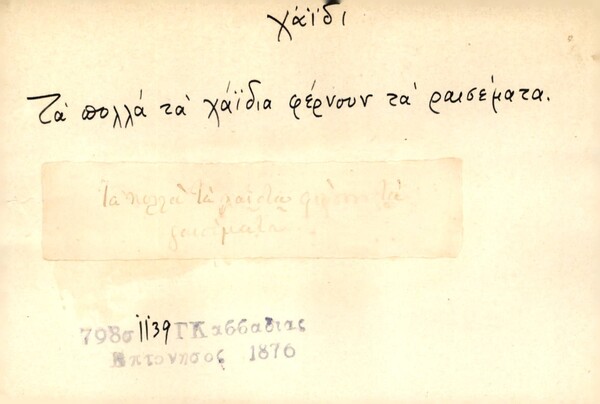 χάϊδι
Τα' πολλά τα' χάϊδια φέρνουν τα' ραισέματα.
Τα πολλὰ τὰ χαΐδια φέρνουν τὰ
ραισέματα
798σ 1139 Γ Καββαδιας
Επτονησος 1876